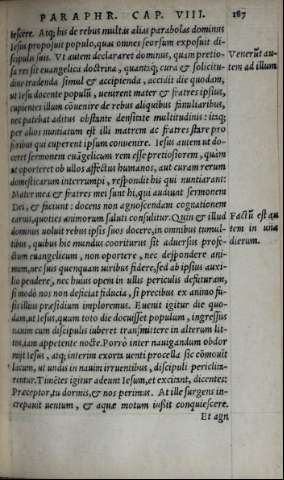 PARAPHR. CAP. VIII. 187
tescere. Atq; his de rebus multas alias parabolas dominus
Iesus proposuit populo, quas omnes seorsum exposuit di-
scipulis suis. Vt autem declararet dominus, quàm pretio-
sa res sit euangelica doctrina, quantáq; cura & solicitu-
dine tradenda simul & accipienda, accidit die quodam,
ut Iesu docente populũ, uenirent mater & fratres ipsius,
cupientes illum cõuenire de rebus aliquibus familiaribus,
nec patebat aditus obstante densitate multitudinis: itaq;
per alios nuntiatum est illi matrem ac fratres stare pro
foribus qui cuperent ipsum conuenire. Iesus autem ut do-
ceret sermonem euãgelicum rem esse pretiosiorem, quàm
ut oporteret ob ullos affectus humanos, aut curam rerum
domesticarum interrumpi, respondit his qui nuntiarant:
Mater mea & fratres mei sunt hi, qui audiunt sermonem
Dei, & faciunt: docens non agnoscendam cognationem
carnis, quoties animorum saluti consulitur. Quin & illud
dominus uoluit rebus ipsis suos docere, in omnibus tumul-
tibus, quibus hic mundus coorituris sit aduersus profes-
dictum euangelicum, non oportere, nec despondere ani-
mum, nec suis quenquam uiribus fidere, sed ab ipsius auxi-
lio pendere, nec huius opem in ullis periculis defuturam,
si modò nos non deficiat fiducia, si precibus ex animo fu-
sis illius præsidium imploremus. Euenit igitur die quo-
dam, ut Iesus, quum toto die docuisset populum, ingressus
nauim cum discipulis iuberet transmittere in alterum lit-
tus, iam appetente nocte. Porrò inter nauigandum obdor
mijt Iesus, atq; interim exorta uenti procella sic cõmouit
lacum, ut undis in nauim irruentibus, discipuli periclita-
rentur. Timẽtes igitur adeunt Iesum, et excitant, dicentes:
Præceptor, tu dormis, & nos perimus. At ille surgens in-
crepauit uentum, & aquæ motum iussit conquiescere.
Et agn
Venerũt au-
tem ad illum
Factũ est au
tem in una
dierum.